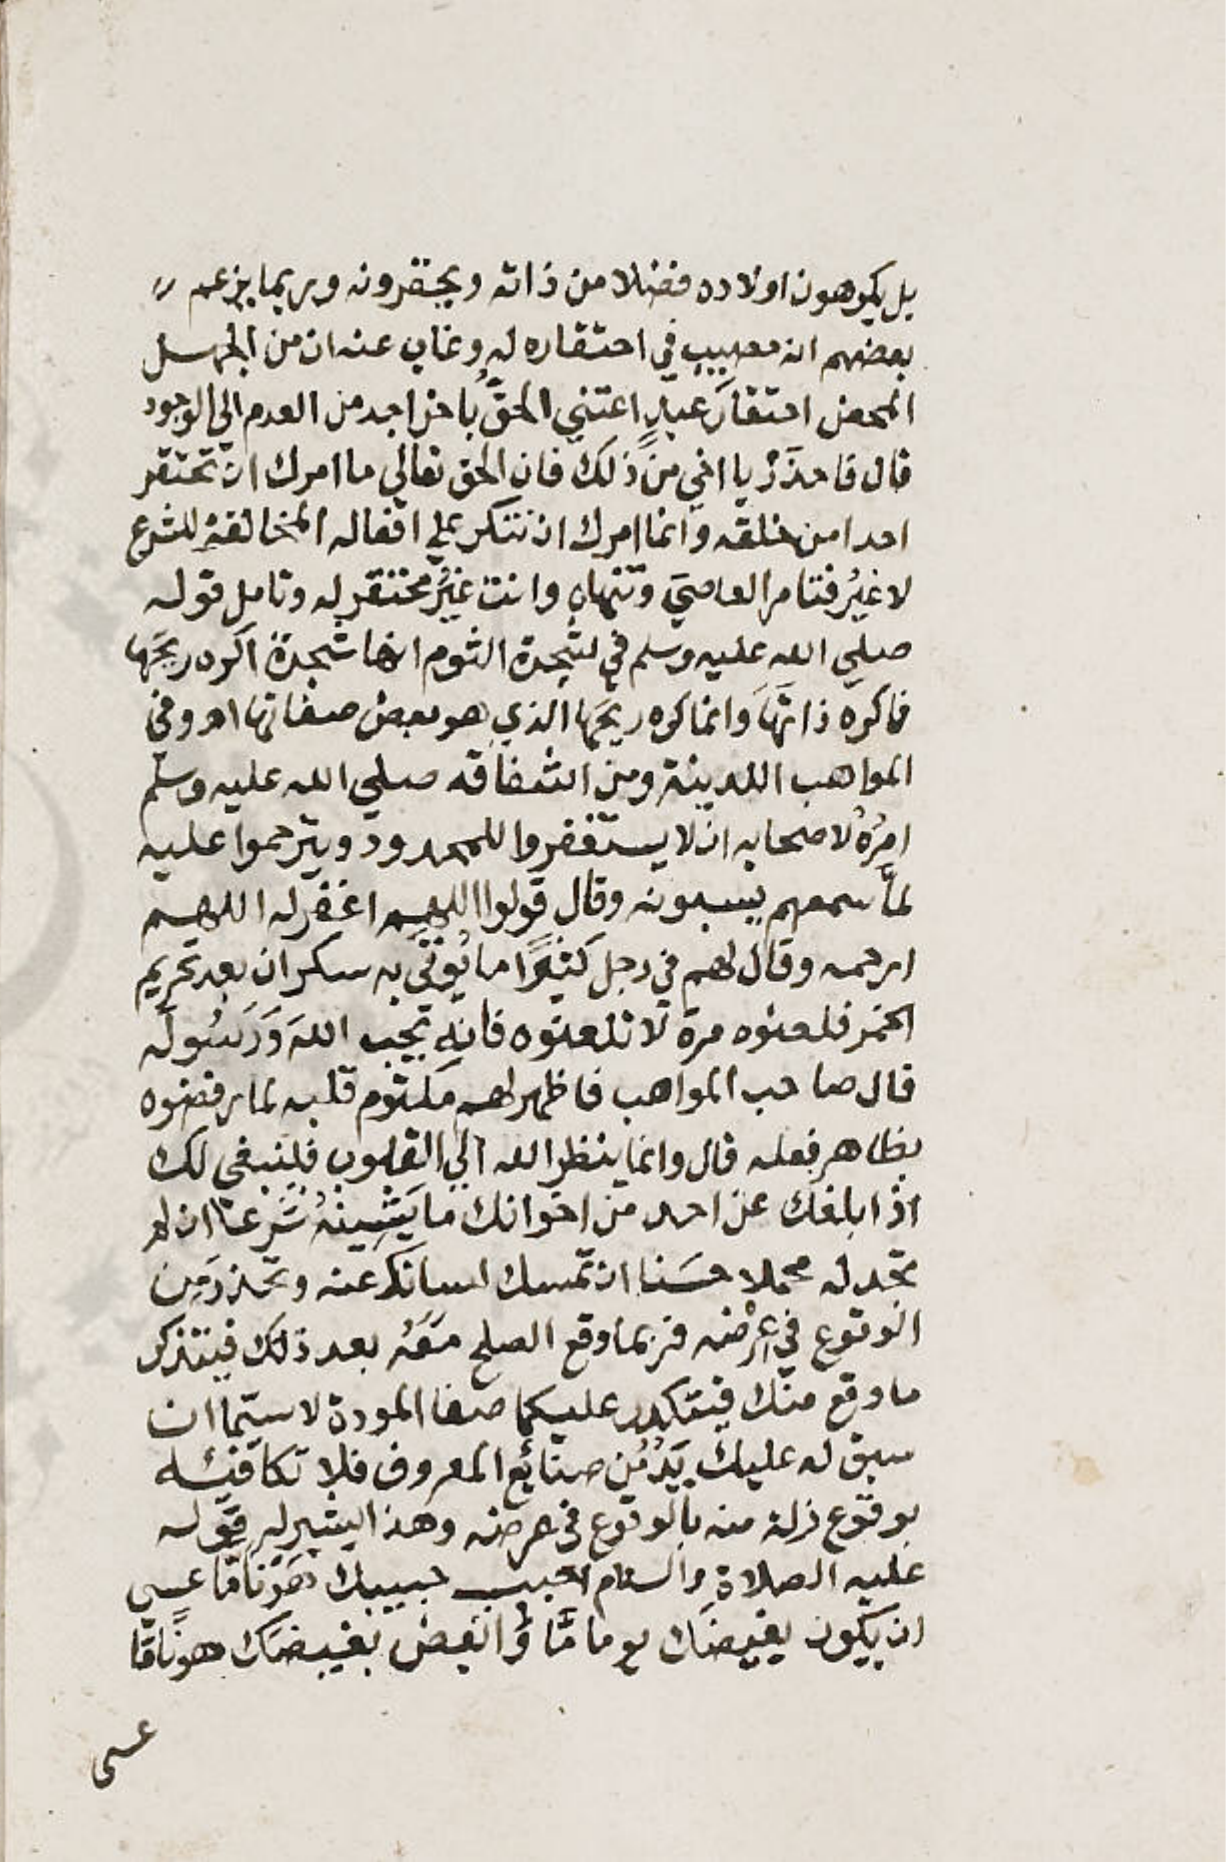 بل يكرهون اولاده فضلا من ذاته ويحتقرونه وربما يزعم
بعضهم انه مصيب في احتقاره له وغاب عنه ان من الجهل
المحض احتقارَ عبدٍ اعتني الحقُّ باخراجه من العدم الي الوجود
قال فاحذَرْ يا اخي منْ ذلك فان الحق تعالي ما امرك ان تحتقر
احدا من خلقه وانما امرك ان تنكر علي افعاله المخالفة للشرع
لا غيرُ فتامر العاصيَ وتنهاه وانت غيرُ محتقر له وتامل قوله
صلي الله عليه وسلم في شجرة الثوم انها شجرةٌ اكره ريحَها
فاكره ذاتَها وانما كره ريحَها الذي هو بعض صفاتها اهـ وفي
المواهب اللدنية ومن اتصافه صلي الله عليه وسلم
امرُهُ لاصحابه ان لا يستغفروا للمحدود ويترحموا عليه
لمَّا سمعهم يسبونه وقال قولوا اللهم اغفر له اللهم
ارحمه وقال لهم في رجل كثيرًا ما يُوتَي به سكران بعد تحريم
الخمر فلعنوه مرة لا تلعنوه فانه يحب اللهَ وَرَسُولَه
قال صاحب المواهب فاظهر لهم مكتوم قلبه لما رفضوه
بظاهر فعله قال وانما ينظر الله الي القلوب فلينبغي لك
اذا بلغك عن احد من اخوانك ما يَشِينُهُ شَرعا ان لم
تجد له محملا حسَنا ان تمسك لسانك عنه وتحذر من
الوقوع في عِرْضه فربما وقع الصلح مَعَهُ بعد ذلك فيتذكر
ما وقع منك فيتكدر عليكما صفا المودة لا سيّما ان
سبق له عليك يَدٌ مِن صنائع المعروف فلا تكافئه
بوقوع زلة منه بالوقوع في عرضه وهذا يشير له قوله
عليه الصلاة والسلام احبب حبيبك هَوْنًا مّا عسي
ان يكون بغيضَك يوما مَّا وَابغض بغيضَك هونًا مّا
عسى